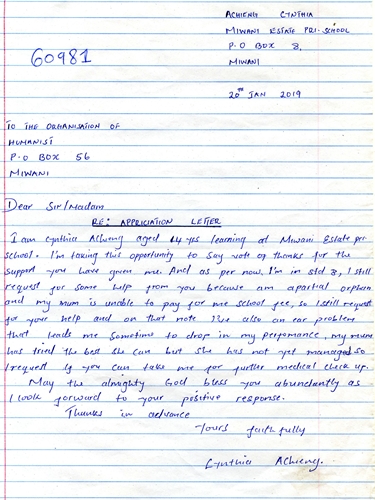 ACHIENG CYNTHIA
MIWANI ESTATE PRI-SCHOOL
P.O BOX 8,
MIWANI
60981
20TH JAN 2019
TO THE ORGANISATION OF
HUMANIST
P.O BOX 56
MIWANI
Dear Sir/Madam
RE: APPRICIATION LETTER
I am Cynthia Achieng aged 14 yrs learning at Miwani Estate pri
school. I'm taking this opportunity to say vote of thanks for the
support you have given me. And as per now, I'm in std 8, I still
request for some help from you because am apartial orphan
and my mum is unable to pay for me school fee, so I still request
for your help and on that note I've also an ear problem
that leads me sometime to drop in my perfomance, my mum
has tried the best she can but she has not yet managed so
I request if you can take me for further medical check up.
May the almighty God bless you abundantly as
I look forward to your positive response.
Thanks in advance
Yours faithfully
Cynthia Achieng.